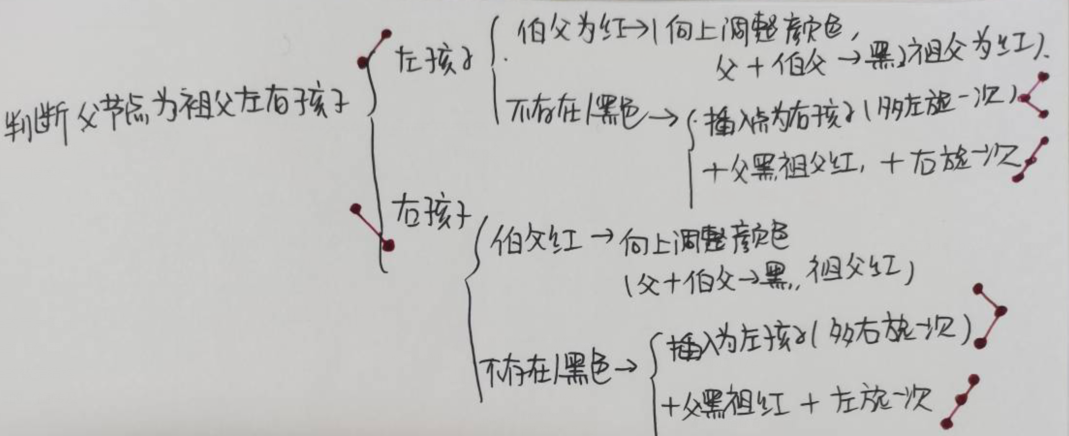 判断父节点为祖父左右孩子
左孩子
伯父为红→(向上调整颜色,
父+伯父→黑,祖父为红).
不存在/黑色→
插入点为右孩子(多左旋一次)
+父黑祖父红, +右旋一次
右孩子
伯父红→向上调整颜色
(父+伯父→黑, 祖父红)
不存在/黑色→
插入为左孩子(多右旋一次)
+父黑祖红+左旋一次